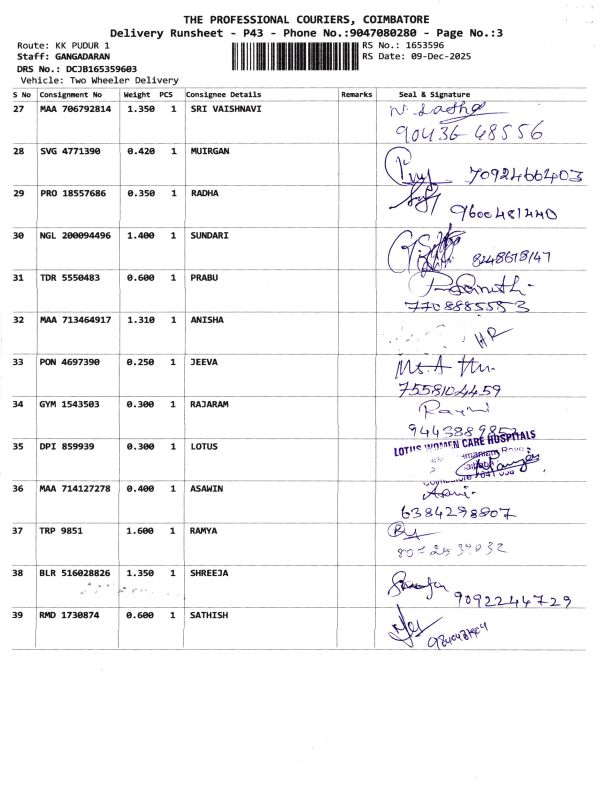 THE PROFESSIONAL COURIERS, COIMBATORE
Delivery Runsheet - P43 - Phone No.:9047080280 - Page No.:3
Route: KK PUDUR 1 RS No.: 1653596
Staff: GANGADARAN RS Date: 09-Dec-2025
DRS No.: DCJB165359603
Vehicle: Two Wheeler Delivery
S No Consignment No Weight PCS Consignee Details Remarks Seal & Signature
27 MAA 706792814 1.350 1 SRI VAISHNAVI
90436 48556
28 SVG 4771390 0.420 1 MUIRGAN
7092466403
29 PRO 18557686 0.350 1 RADHA
9600481440
30 NGL 200094496 1.400 1 SUNDARI
8248678147
31 TDR 5550483 0.600 1 PRABU
7708885553
32 MAA 713464917 1.310 1 ANISHA
HR
33 PON 4697390 0.250 1 JEEVA
7558104459
34 GYM 1543503 0.300 1 RAJARAM
35 DPI 859939 0.300 1 LOTUS
LOTUS WOMEN CARE HOSPITALS
36 MAA 714127278 0.400 1 ASAWIN
6384298807
37 TRP 9851 1.600 1 RAMYA
38 BLR 516028826 1.350 1 SHREEJA
9092244729
39 RMD 1730874 0.600 1 SATHISH